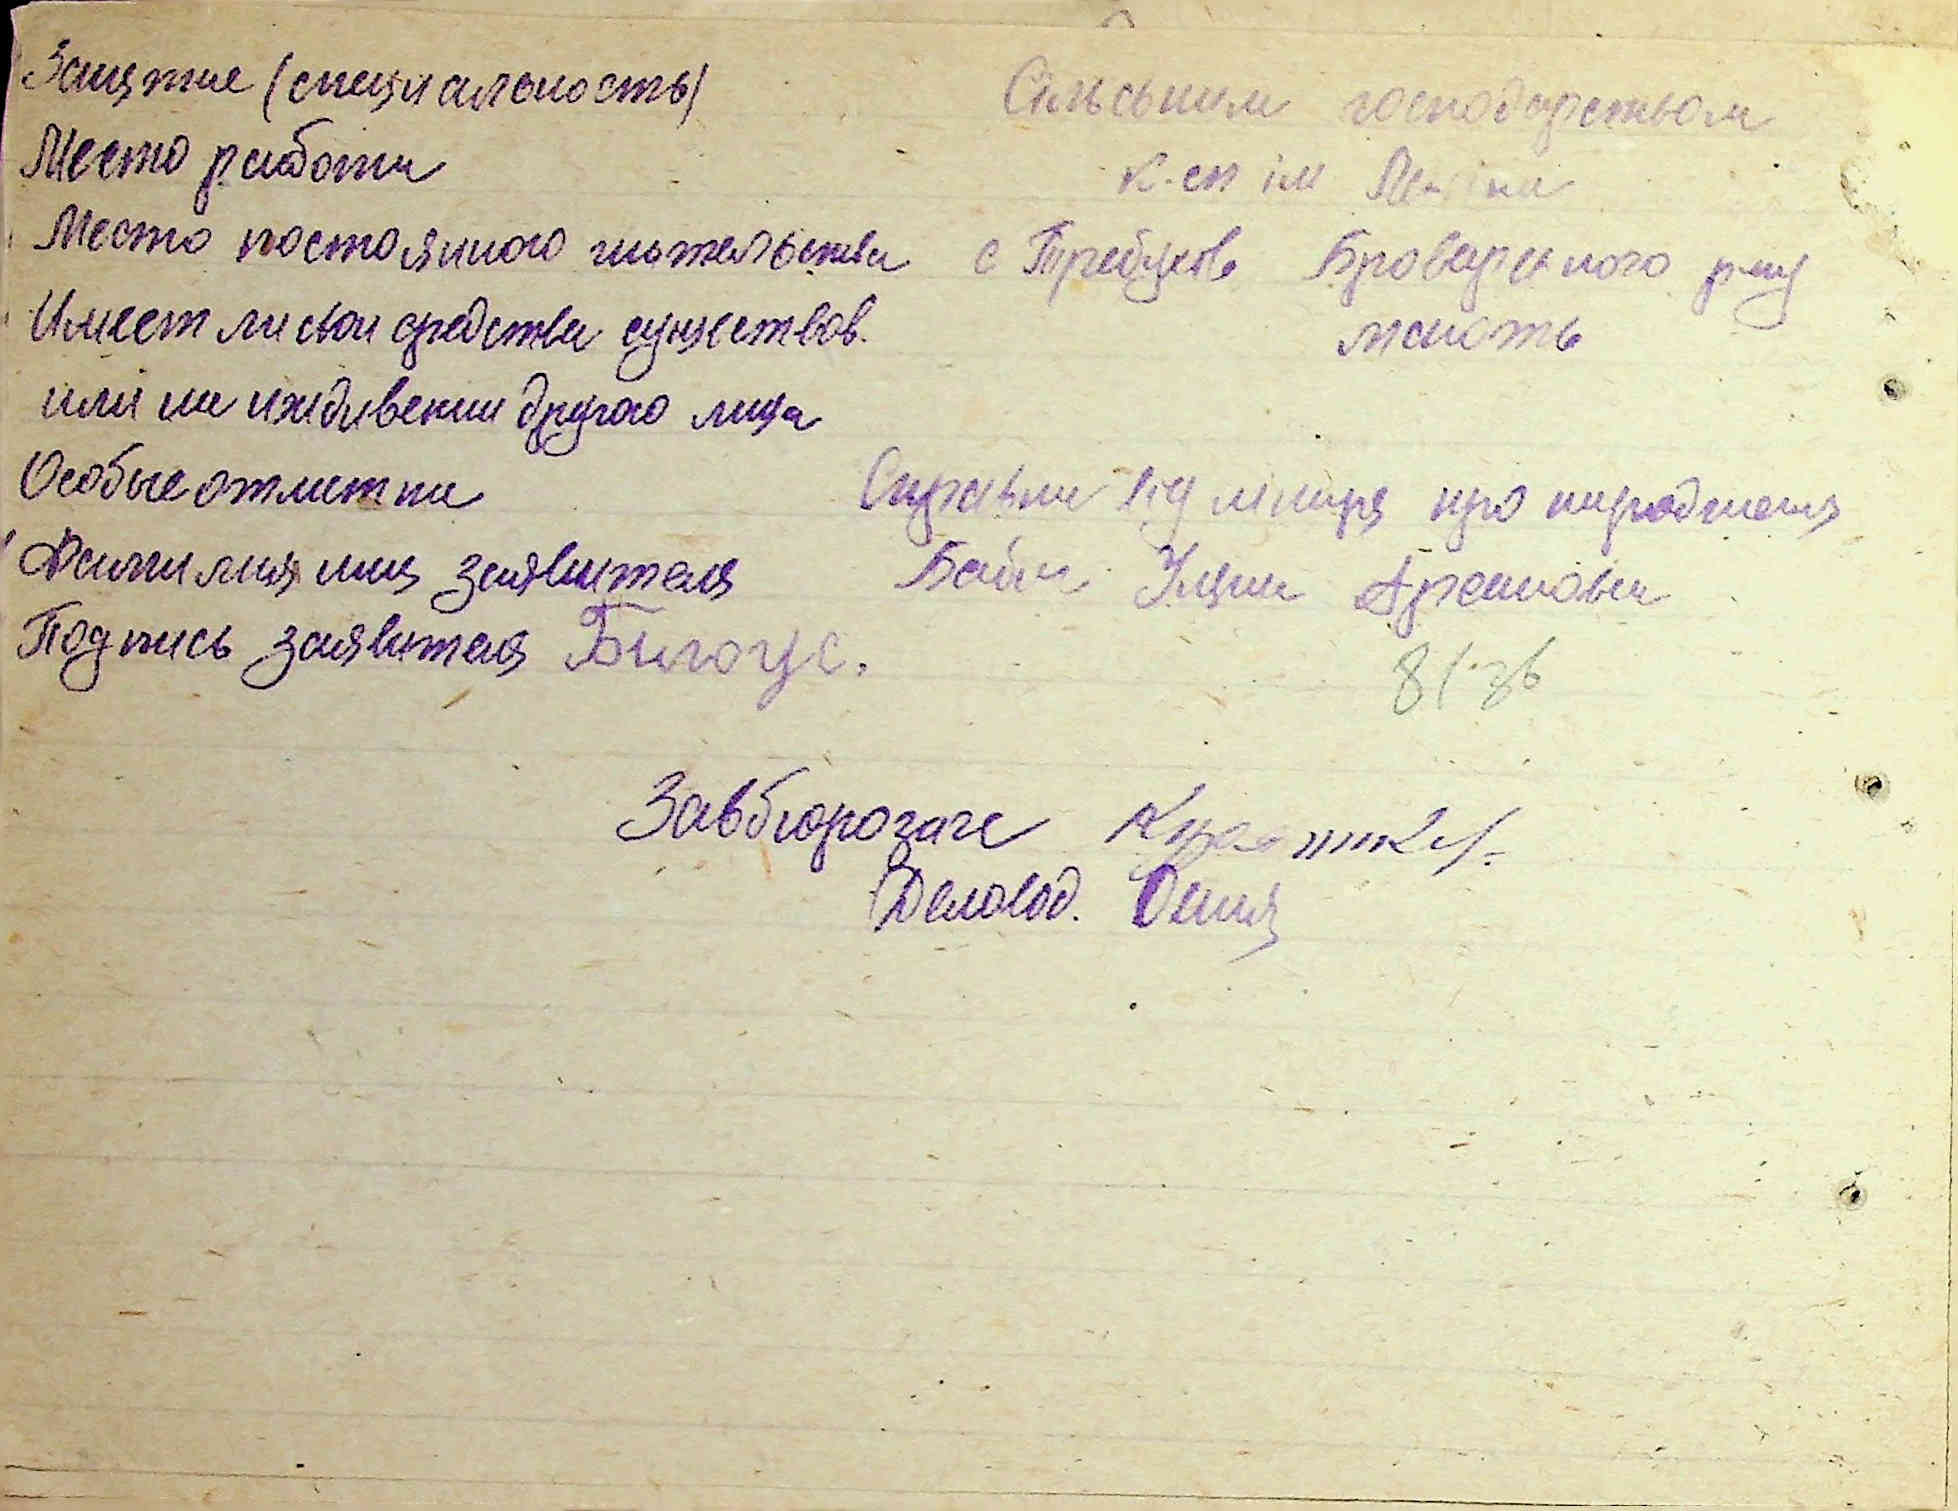 Занятие (специальность) Сільським господарством
Место работи к-сп ім Леніна
Место постоянного жительства с Требухов Броварского р-ну
Имеет ли свои средства существов. мають
или на иждивении другого лица
Особые отметки Справка від лікаря про народження
Фамилия имя заявителя Байи Уляна Арсановна
Подпись заявителя Билоус.
Завбюрозагс
Деловод.